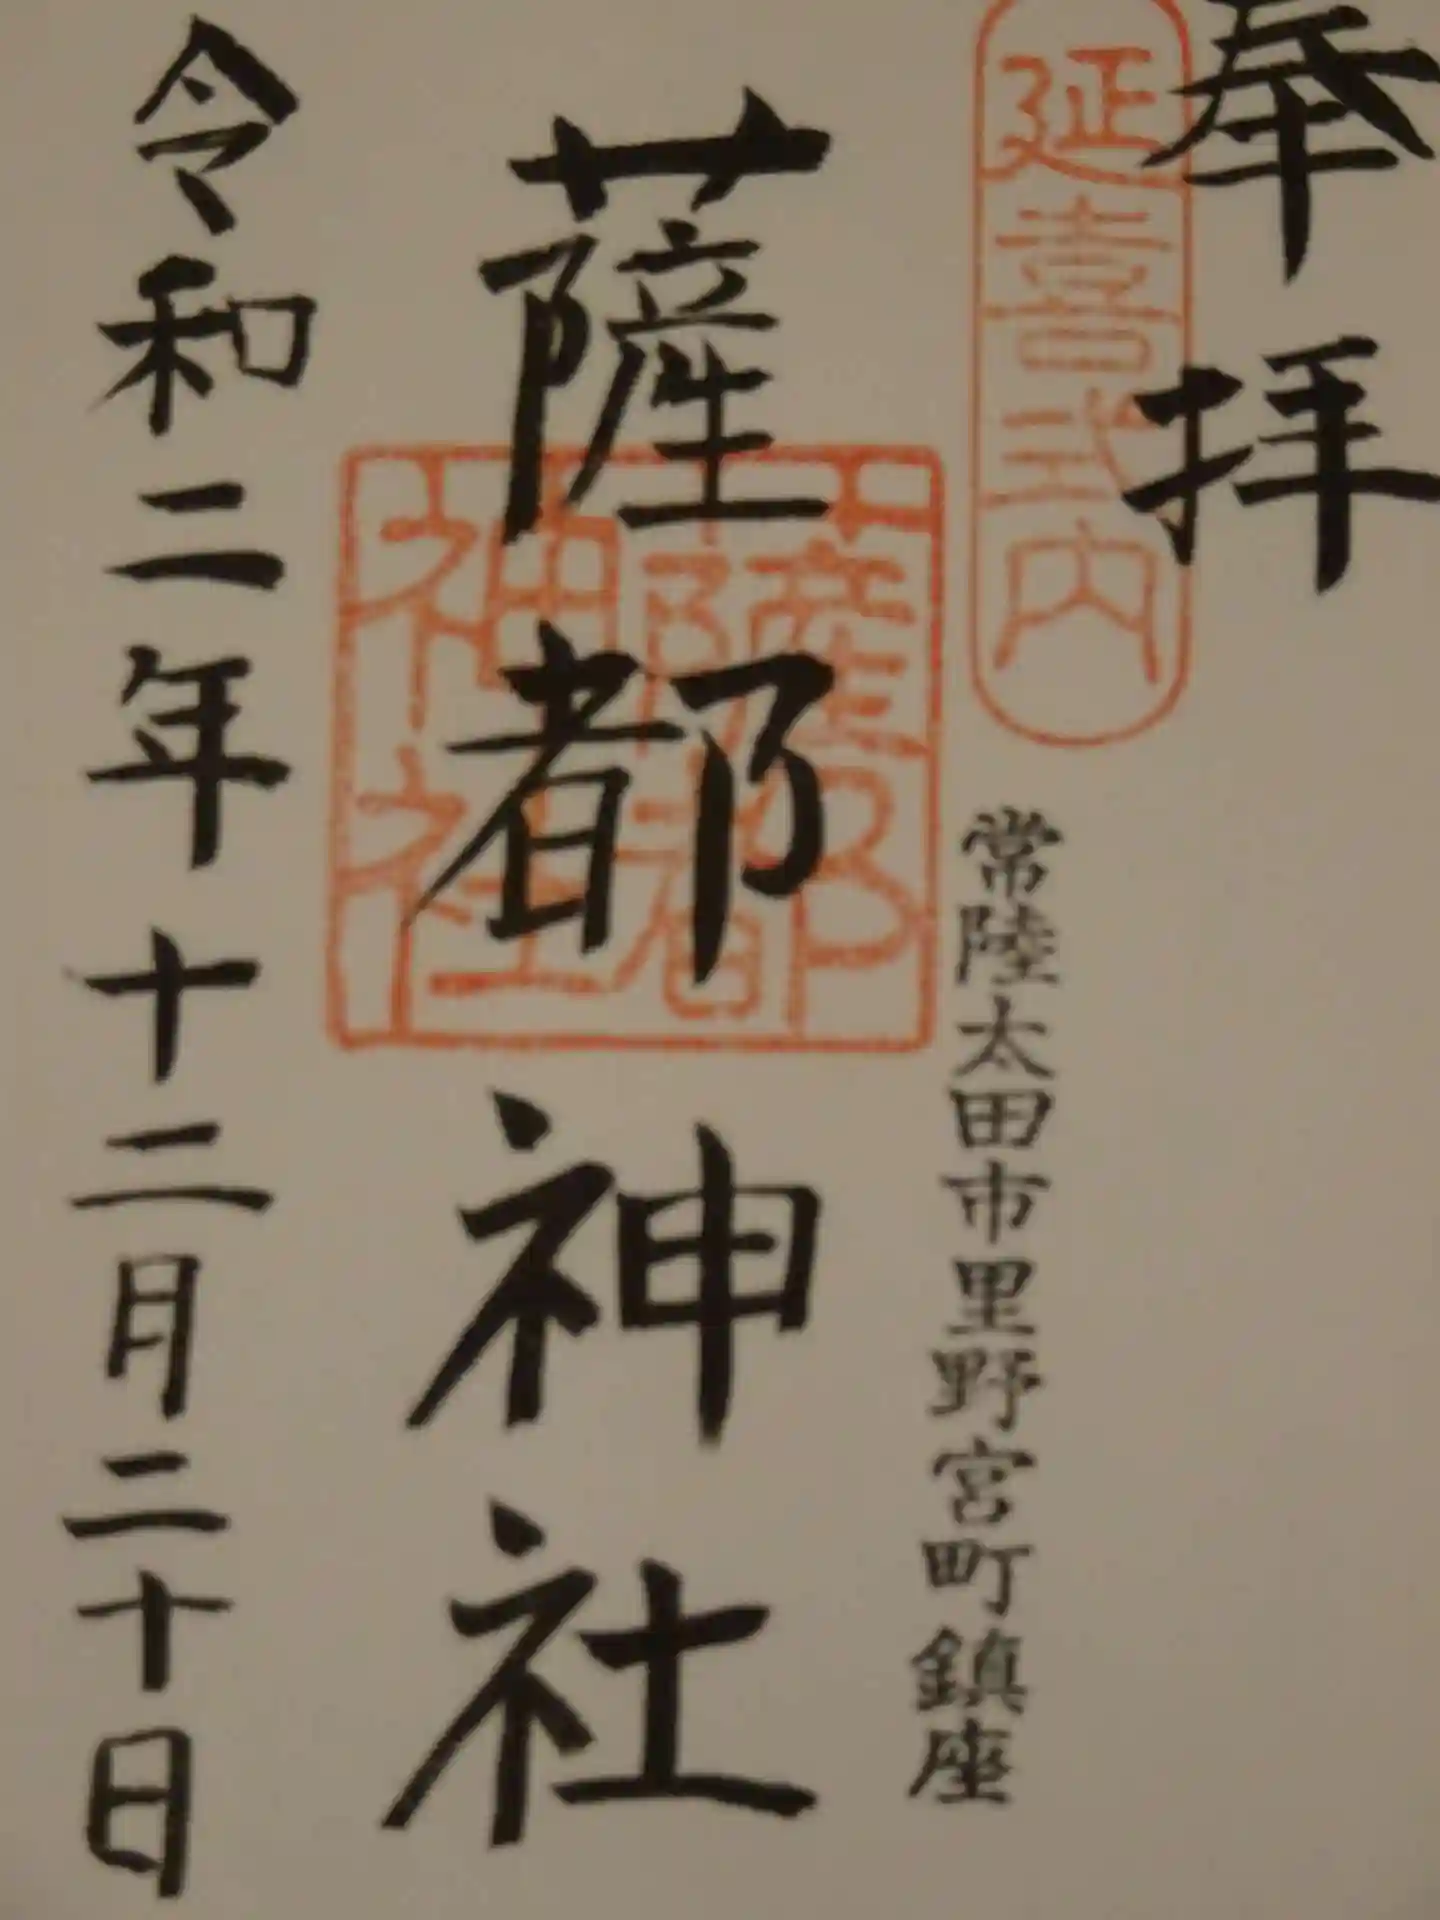 奉拝
延喜式内
常陸太田市里野宮町鎮座
薩都神社
薩都
神社
令和二年十二月二十日